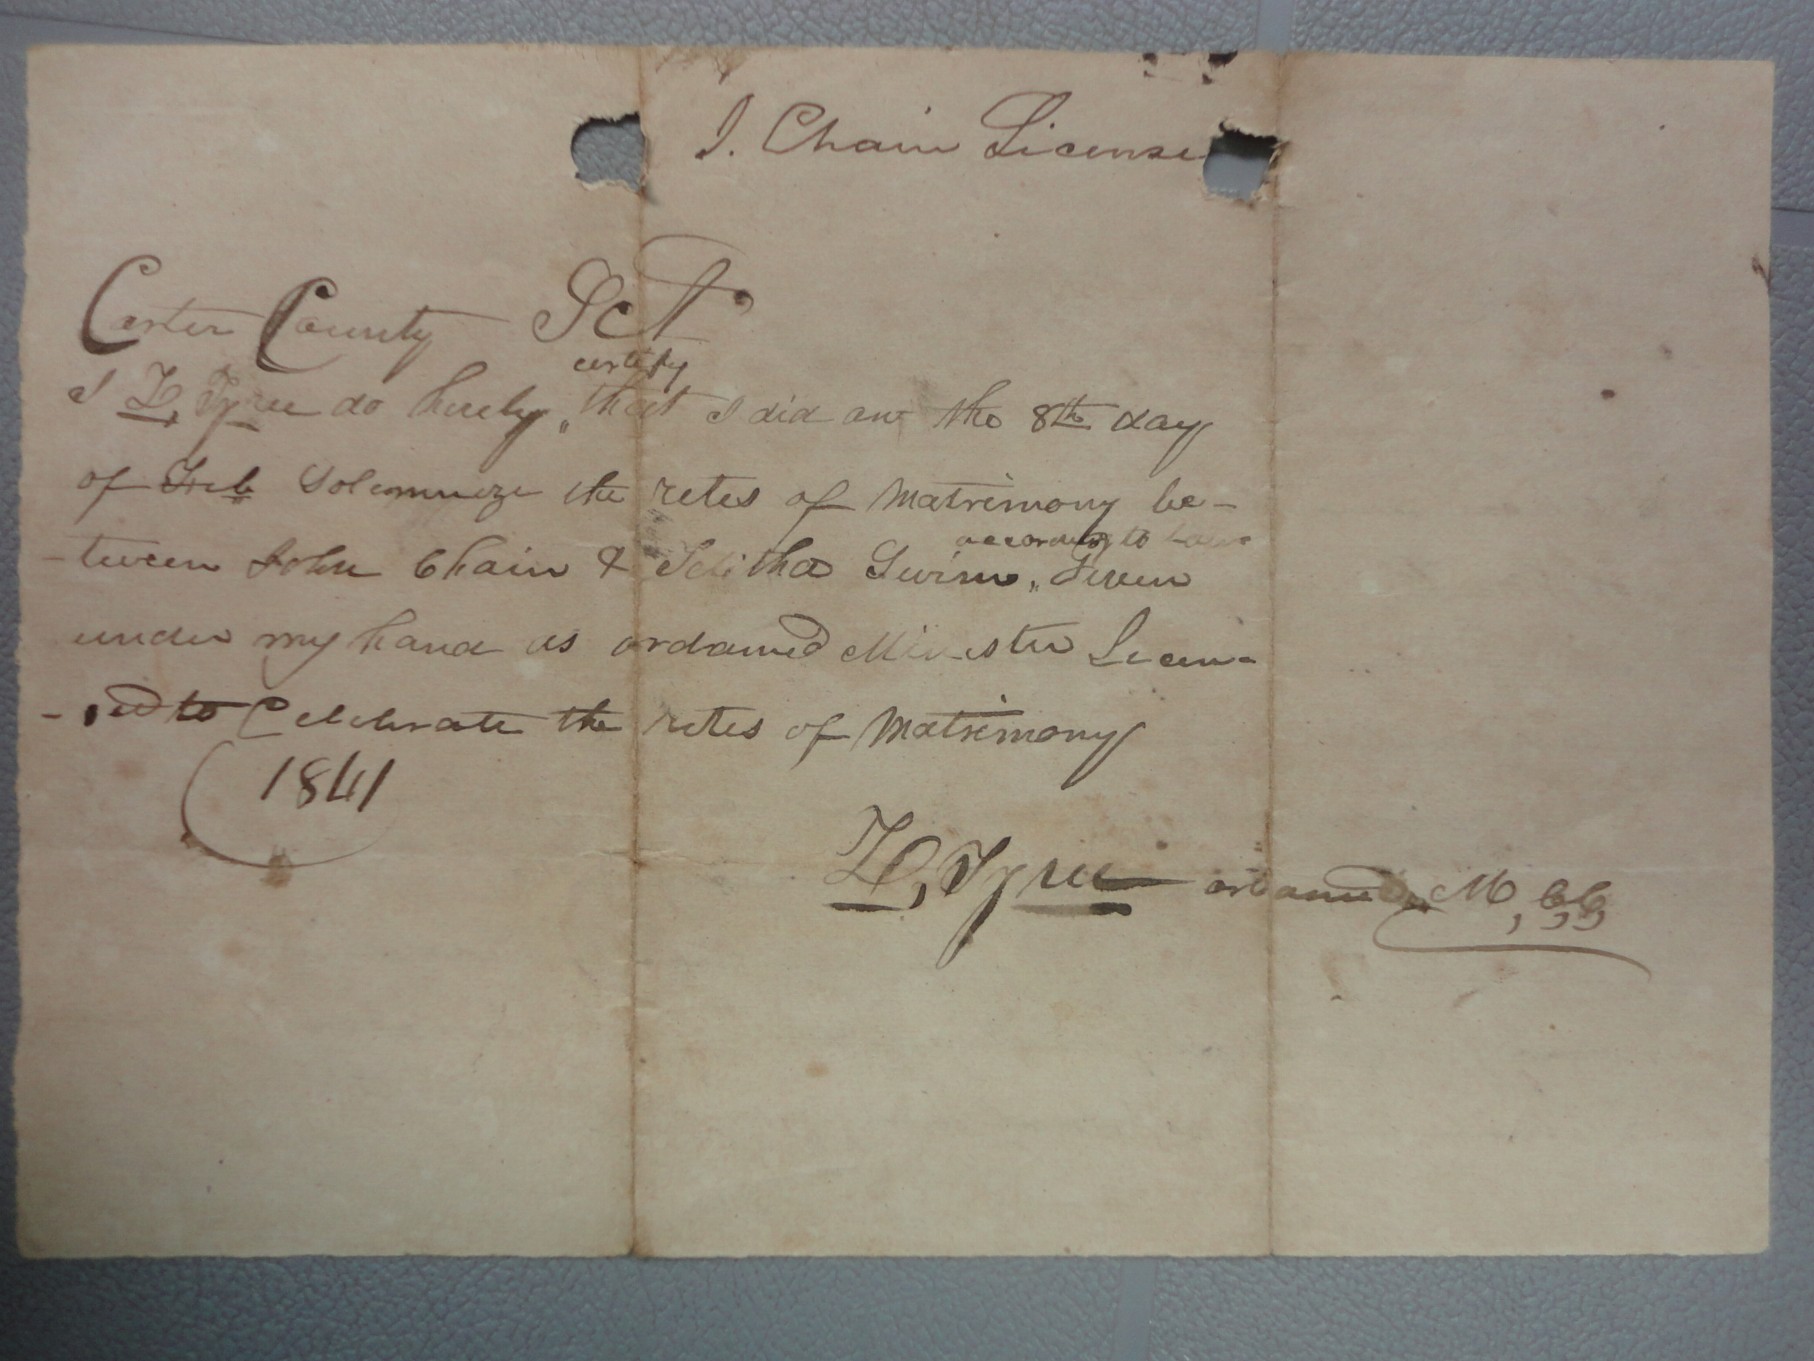 J. Chain License
Carter County Sct
certify
I Z, Tyree do hereby " that I did on the 8th day
of Feb Solemnize the retes of Matrimony be-
according to Law
-tween John Chain & Telitha Swim " Given
under my hand as ordained Minister Licen-
-sed to Celebrate the retes of Matrimony
1841
Z, Tyree ordained M,